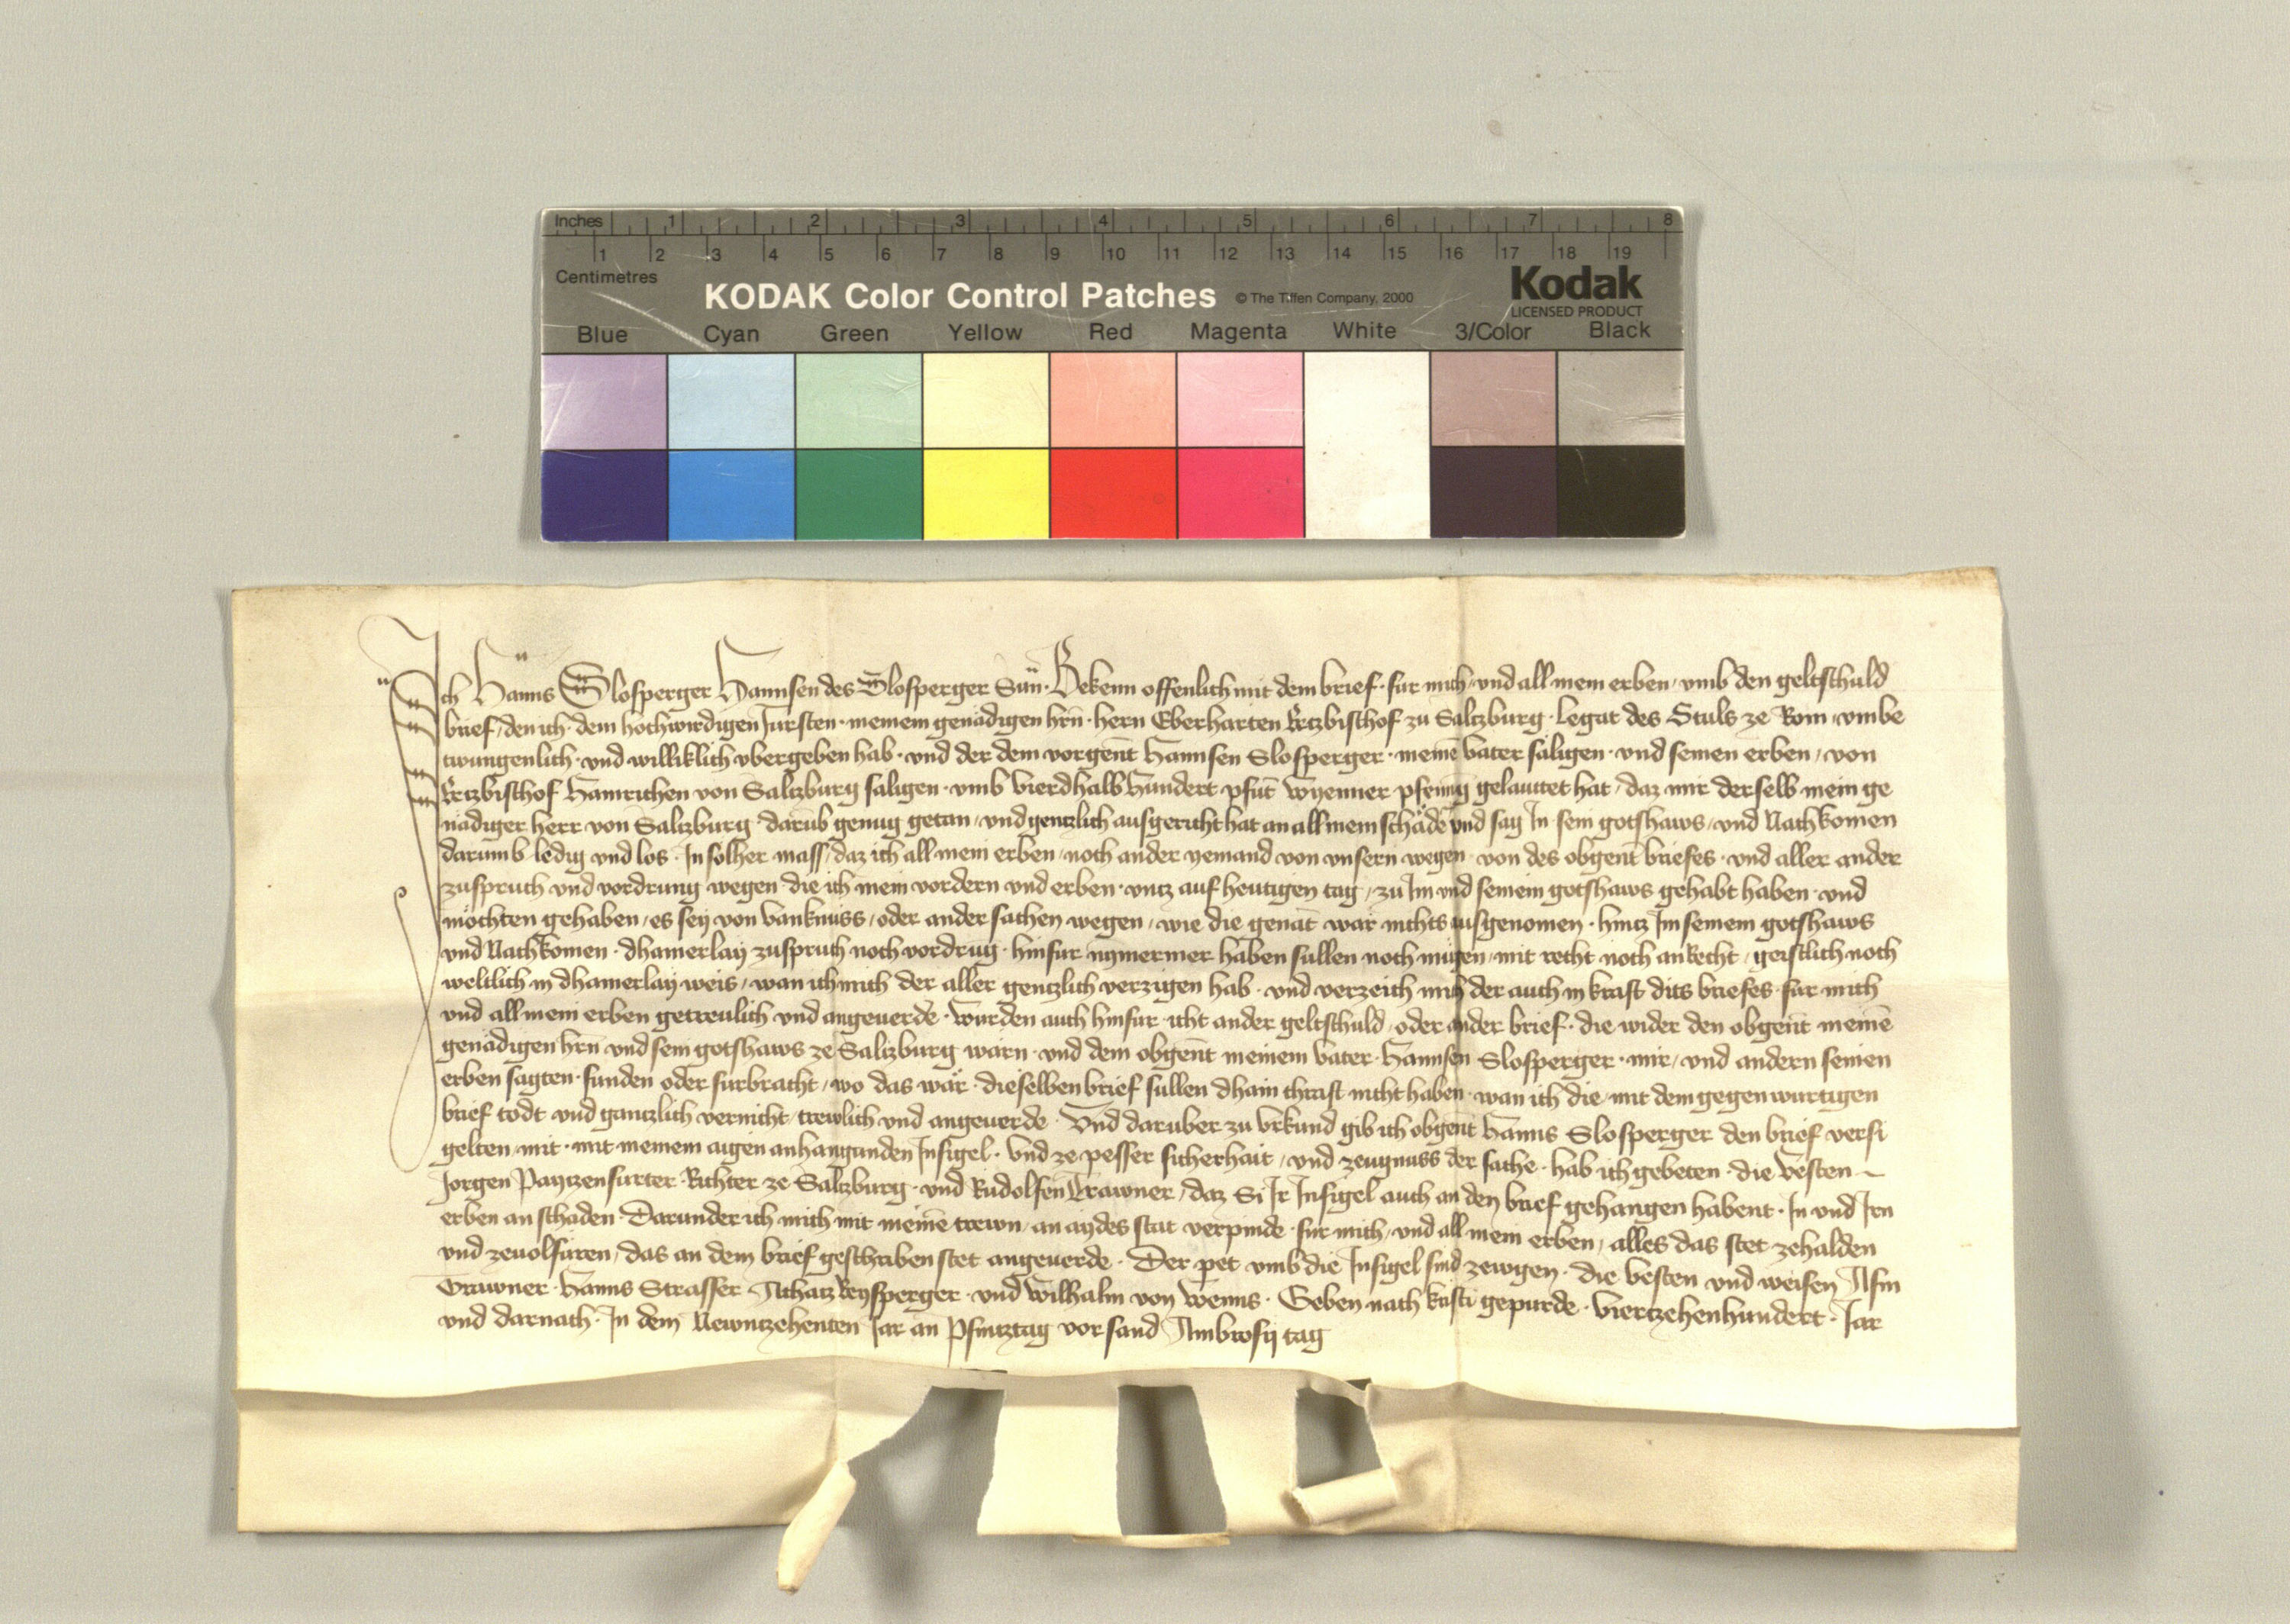 Inches 1 2 3 4 5 6 7 8
1 2 3 4 5 6 7 8 9 10 11 12 13 14 15 16 17 18 19
Centimetres
KODAK Color Control Patches © The Tiffen Company, 2000 Kodak
LICENSED PRODUCT
Blue Cyan Green Yellow Red Magenta White 3/Color Black
Ich Hanns Slosperger Hannsen des Slosperger Sun · Bekenn offenlich mit dem brief · fur mich und all mein erben · umb den geltschuld
brief / den ich · dem hochwirdigen fursten · meinem genadigen hrn · hern Eberharten Ertzbischof zu Saltzburg · legat des Stuls ze Rom · umbe
twungenlich · und williklich ubergeben hab · und der dem vorgent Hannsen Slosperger · meinē vater säligen · und seinen erben / von
Ertzbischof Hainrichen von Saltzburg saligen · umb Vierdhalb Hundert pfūt wyenner pfening gelauttet hat / daz mir derselb mein ge
nädiger herr von Saltzburg darūb genug getan / und gentzlich ausgericht hat an all mein schädē und sag In sein gotshaws / und Nachkomen
darumb ledig und los · In solher mass / daz ich all mein erben / noch ander yemand von unsern wegen · von des obgent briefes · und aller ander
zuspruch und vordrung wegen die ich mein vordern und erben · untz auf heutigen tag / zu Im und seinem gotshaws gehabt haben · und
möchten gehaben / es sey von vanknüss / oder ander sachen wegen / wie die genāt wär nichts ausgenomen · hintz Im seinem gotshaws
und Nachkomen · dhainerlay zuspruch noch vordrūg · hinfur nymermer haben sullen noch mügen / mit recht noch an Recht / geistlich noch
weltlich in dhainerlay weis / wan ich mich der aller gentzlich verzigen hab · und verzeich mich der auch in kraft dits briefes · fur mich
und all mein erben getreulich und angeuerde · wurden auch hinfur icht ander geltschuld / oder ander brief · die wider den obgent meinē
genädigen hrn und sein gotshaws ze Saltzburg wärn · und dem obgent meinem vater · Hannsen Slosperger · mir / und andern seinen
erben sagten · funden oder furbracht / wo das wär · dieselben brief sullen dhain chraft nicht haben · wan ich die / mit dem gegenwurtigen
brief todt und gantzlich vernicht / trewlich und angeuerde · Und daruber zu urkund gib ich obgent Hanns Slosperger den brief versi
gelten / mit · mit meinem aigen anhangunden Insigel · Und ze pesser sicherhait / und zeugnuss der sache · hab ich gebeten · die Vesten
Jorgen Pantzenfurter · Richter ze Saltzburg · und Rudolfen Trawner / daz Si Ir Insigel auch an den brief gehangen habent · In und Iren
erben an schaden · Darunder ich mich mit meinē trewn / an aydes stat verpinde · für mich / und all mein erben / alles das stet zehalden
und zeuolfüren / das an dem brief geschriben stet angeuerde · Der pet umb die Insigel sind zewgen · die vesten und weisen
Trawner · Hanns Strasser Achatz Reysperger · und Wilhalm von Wenns · Geben nach kristi gepurde · Viertzehenhundert · Jar
und darnach · In dem Newntzehenten Jar an Pfintztag vor sand Ambrosij tag